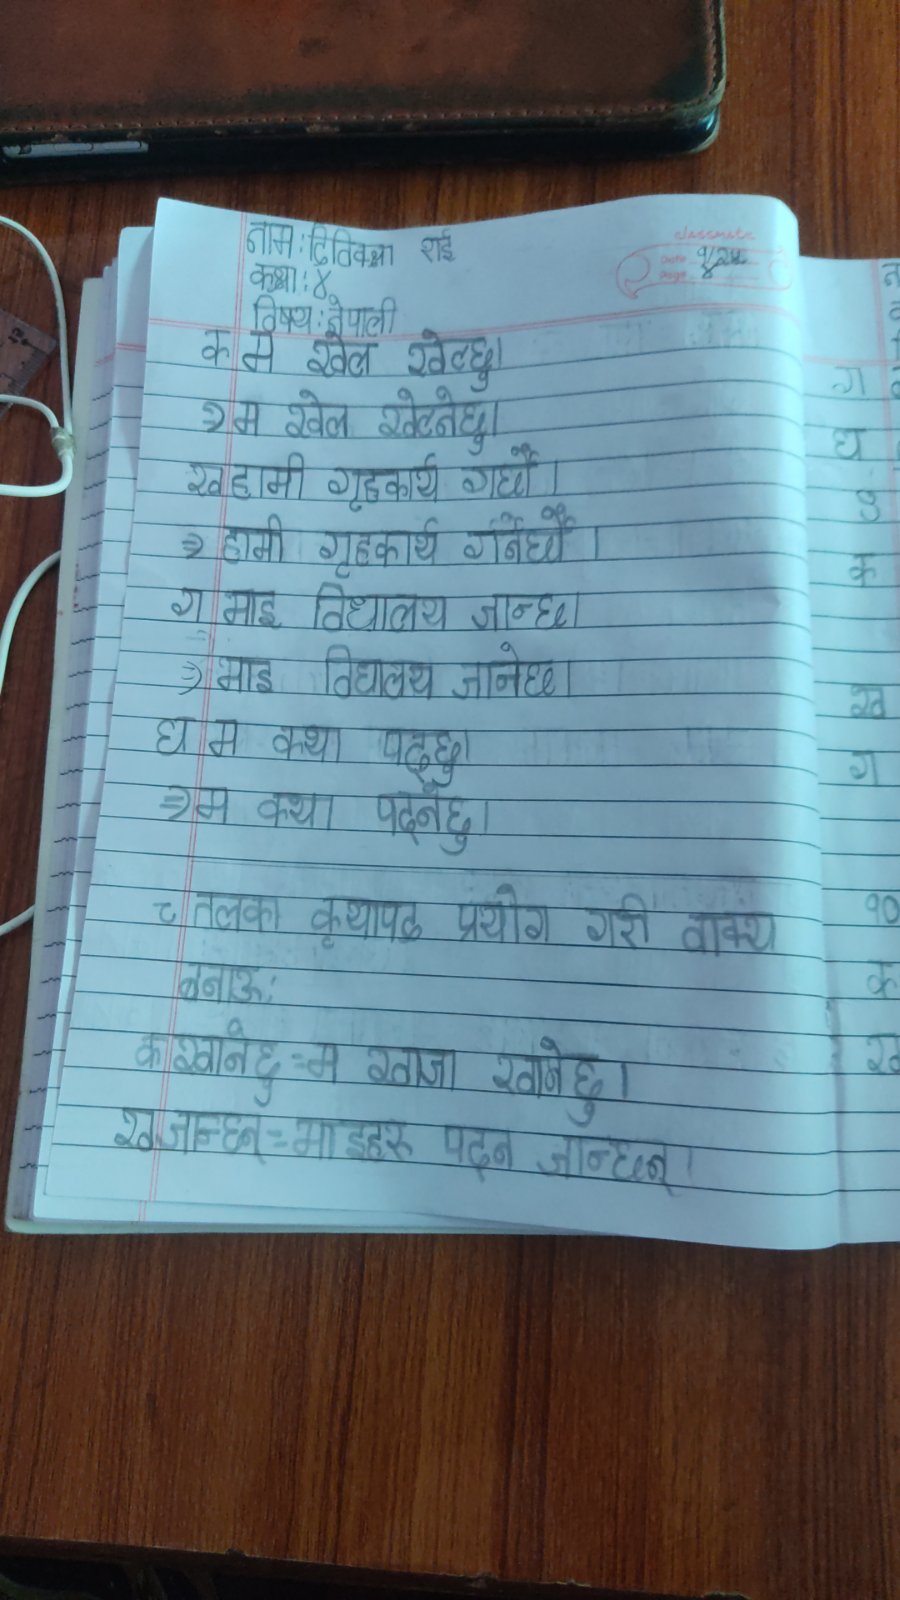 नाम: द्रितिक्षा राई
कक्षा: ४
विषय: नेपाली
classmate
Date
Page
क म खेल खेल्छु।
⇒ म खेल खेल्नेछु।
ख हामी गृहकार्य गर्छौं।
⇒ हामी गृहकार्य गर्नेछौं।
ग भाइ विद्यालय जान्छ।
⇒ भाइ विद्यालय जानेछ।
घ म कथा पढ्छु।
⇒ म कथा पढ्नेछु।
८ तलका कृयापद प्रयोग गरी वाक्य
बनाऊ:
क खानेछु = म खाजा खानेछु।
ख जान्छन् = भाइहरू पढ्न जान्छन्।
ग
घ
ङ
क
ख
ग
१०
क
ख